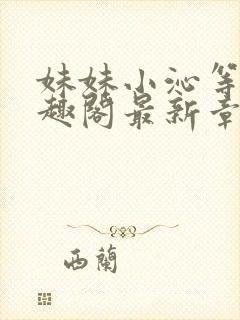 妹妹小沁等
趣阁最新章
西蘭